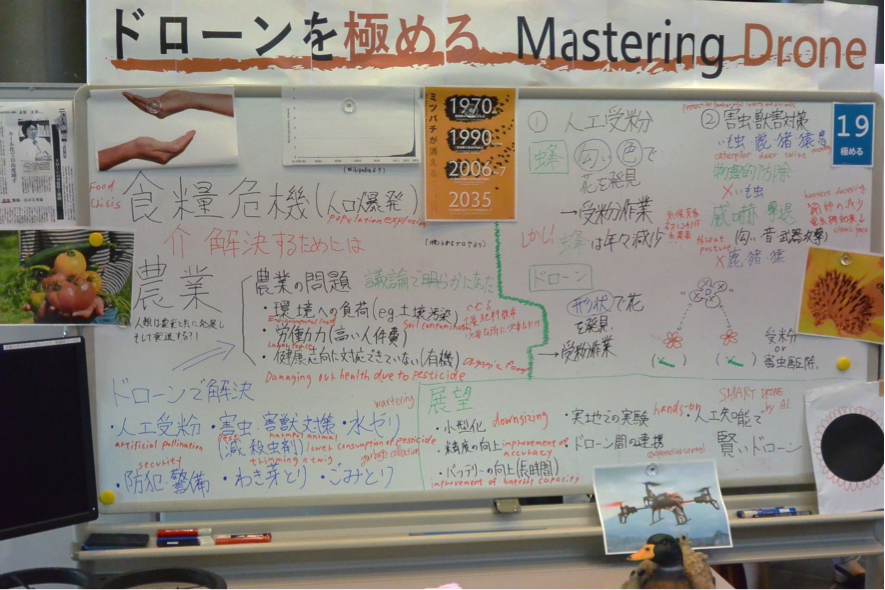 ドローンを極める Mastering Drone
19
極める
ミツバチが消える
1970
1990
2006
2035
Food Crisis
食糧危機(人口爆発)
population explosion
解決するためには
農業
農業の問題 議論で明らかになた
・環境への負荷(eg.土壌汚染)
Environmental load
soil contamination
・労働力(高い人件費)
・健康志向に対応できていない(有機)
organic food
Damaging our health due to pesticide
ドローンで解決
watering
・人工受粉 ・害虫、害獣対策 ・水やり
artificial pollination
harmful animal
(減 殺虫剤)
lower consumption of pesticide
security
trimming a twig
garbage collection
・防犯・警備 ・わき芽とり ・ごみとり
① 人工受粉
蜂 匂い 色で
花を発見
→受粉作業
しかし 蜂は年々減少
ドローン
形状で花
を発見
→受粉作業
② 害虫、獣害対策
いも虫 鹿 猪 猿
caterpillar deer
物理的防除
×いも虫
threat posture
匂い 音 武器攻撃)
×鹿 猪 猿
受粉
or
害虫駆除
展望
・小型化 downsizing
・精度の向上 improvement of accuracy
・バッテリーの向上(長時間)
improvement of battery capacity
・実地での実験 hands-on
・ドローン間の連携
SMART DRONE
by AI
・人工知能で
賢いドローン